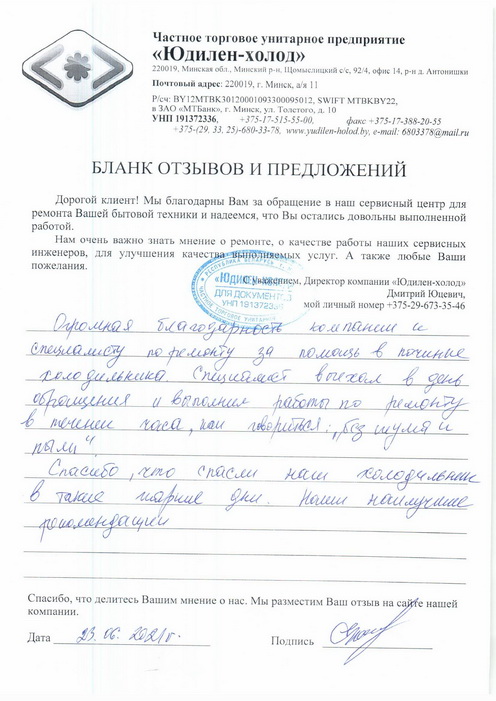 Частное торговое унитарное предприятие
«Юдилен-холод»
220019, Минская обл., Минский р-н, Щомыслицкий с/с, 92/4, офис 14, р-н д. Антонишки
Почтовый адрес: 220019, г. Минск, а/я 11
Р/сч: BY12MTBK30120001093300095012, SWIFT MTBKBY22,
в ЗАО «МТБанк», г. Минск, ул. Толстого, д. 10
УНП 191372336, +375-17-515-55-00, факс +375-17-388-20-55
+375-(29, 33, 25)-680-33-78, www.yudilen-holod.by, e-mail: 6803378@mail.ru
БЛАНК ОТЗЫВОВ И ПРЕДЛОЖЕНИЙ
Дорогой клиент! Мы благодарны Вам за обращение в наш сервисный центр для
ремонта Вашей бытовой техники и надеемся, что Вы остались довольны выполненной
работой.
Нам очень важно знать мнение о ремонте, о качестве работы наших сервисных
инженеров, для улучшения качества выполняемых услуг. А также любые Ваши
пожелания.
С уважением, Директор компании «Юдилен-холод»
Дмитрий Юцевич,
мой личный номер +375-29-673-35-46
«Юдилен
ДЛЯ ДОКУМЕНТОВ
УНП 1913723
Огромная благодарность компании и
специалисту по ремонту за помощь в починке
холодильника. Специалист выехал в день
обращения и выполнил работы по ремонту
в течении часа, как говориться: „без шума и
пыли".
Спасибо, что спасли наш холодильник
в такие жаркие дни. Наши наилучшие
рекомендации
Спасибо, что делитесь Вашим мнение о нас. Мы разместим Ваш отзыв на сайте нашей
компании.
Дата 23.06.2021г. Подпись